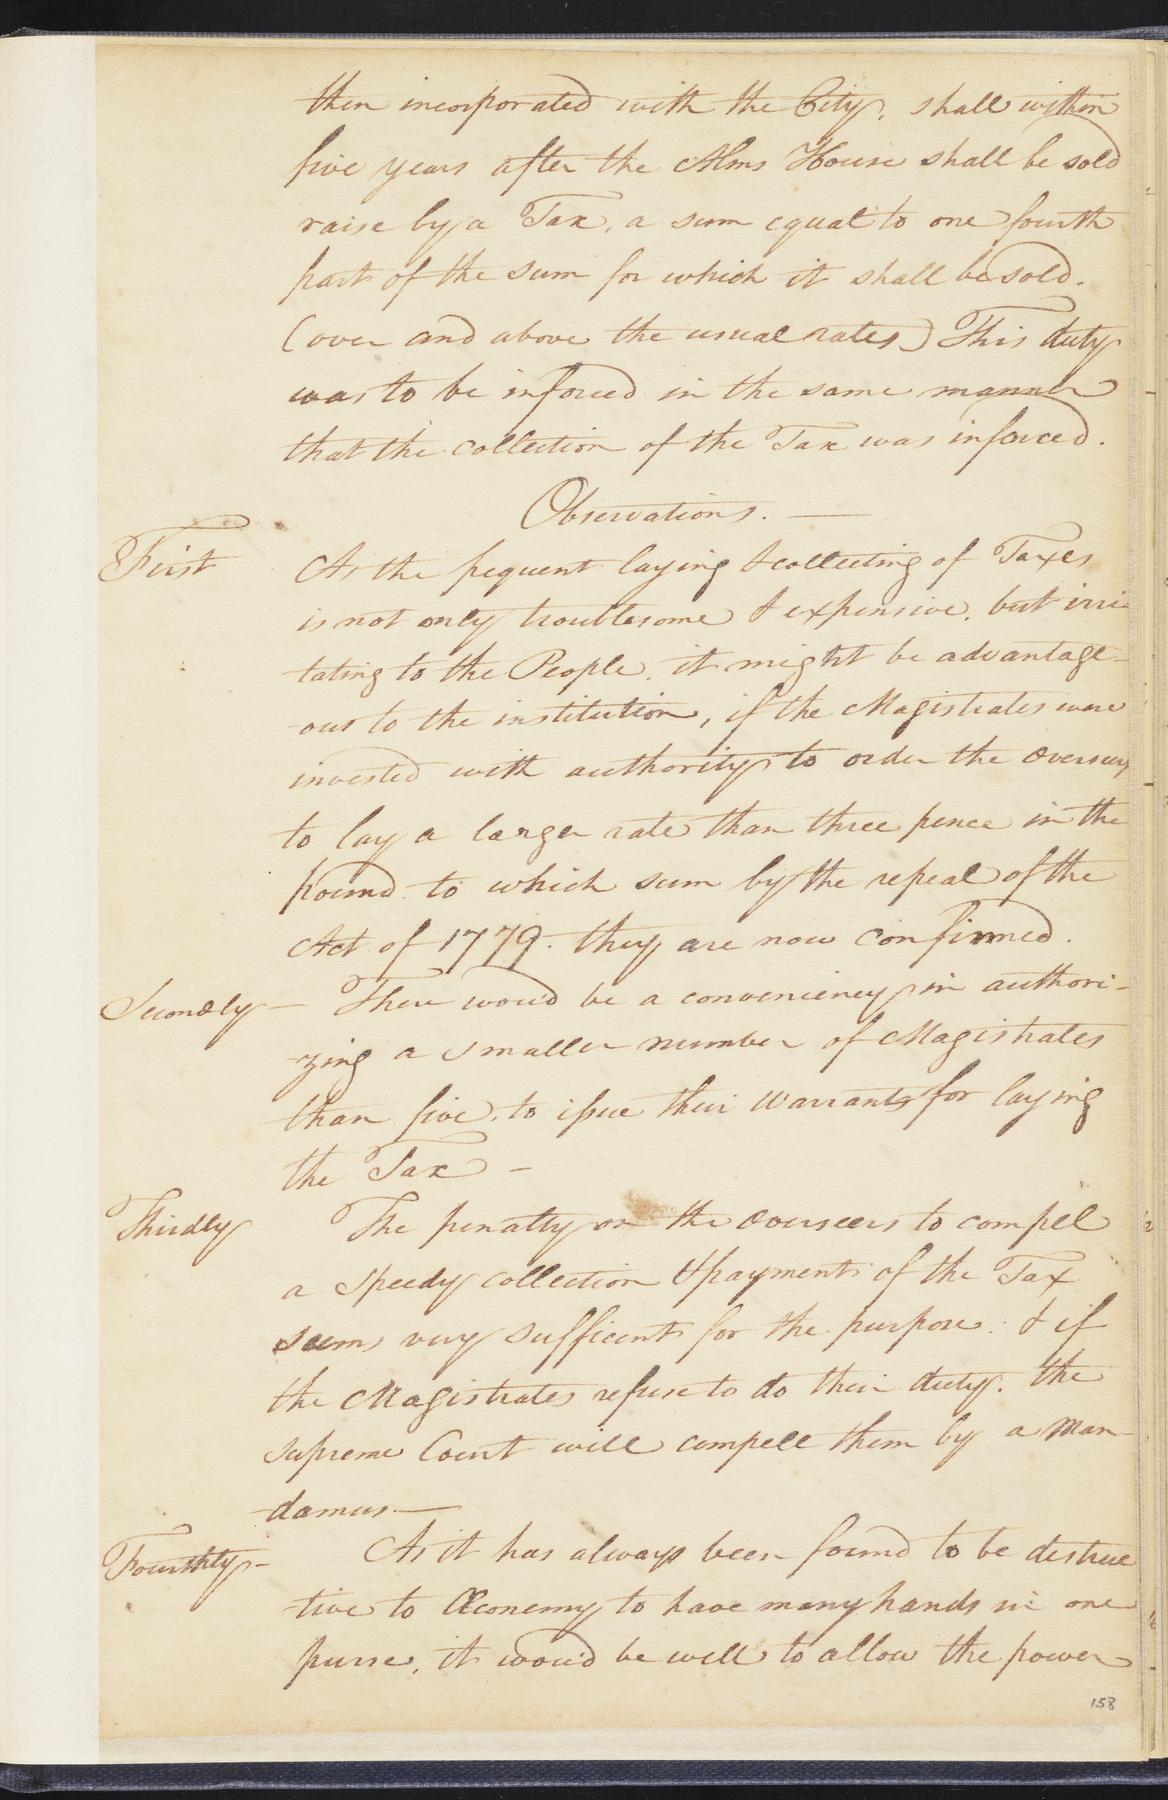 then incorporated with the City, shall within
five years after the Alms House shall be sold
raise by a Tax, a sum equal to one fourth
part of the sum for which it shall be sold.
(over and above the usual rates) This duty
was to be inforced in the same manner
that the collection of the Tax was inforced.
Observations. —
First As the frequent laying & collecting of Taxes
is not only troublesome & expensive, but irri-
tating to the People, it might be advantage-
ous to the institution, if the Magistrates were
invested with authority to order the Overseers
to lay a larger rate than three pence in the
pound to which sum by the repeal of the
Act of 1779. they are now confinned.
Secondly — There wou'd be a conveniency in authori-
zing a smaller number of Magistrates
than five, to issue their Warrants for laying
the Tax —
Thirdly The penalty on the Overseers to compell
a speedy collection & payment of the Tax
seems very sufficent for the purpose: & if
the Magistrates refuse to do their duty. the
supreme Court will compell them by a Man-
damus —
Fourthly — As it has always been found to be destruc
tive to Œconemy to have many hands in one
purse, it wou'd be well to allow the power
158